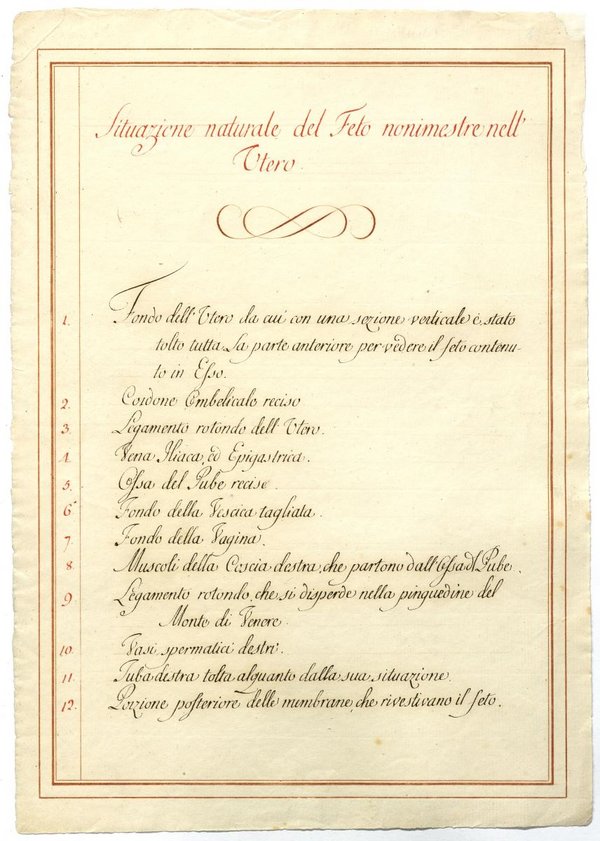 Situazione naturale del Feto nonimestre nell'
Utero.
1. Fondo dell'Utero da cui con una sezione verticale è stato
tolto tutta la parte anteriore per vedere il feto contenu-
to in Esso.
2. Cordone Ombelicale reciso
3. Legamento rotondo dell'Utero.
4. Vena Iliaca, ed Epigastrica.
5. Ossa del Pube recise.
6. Fondo della Vescica tagliata.
7. Fondo della Vagina.
8. Muscoli della Coscia destra, che partono dall'Ossa dl Pube.
9 Legamento rotondo, che si disperde nella pinguedine del
Monte di Venere.
10. Vasi spermatici destri.
11. Tuba destra tolta alquanto dalla sua situazione.
12. Porzione posteriore delle membrane, che rivestivano il feto.